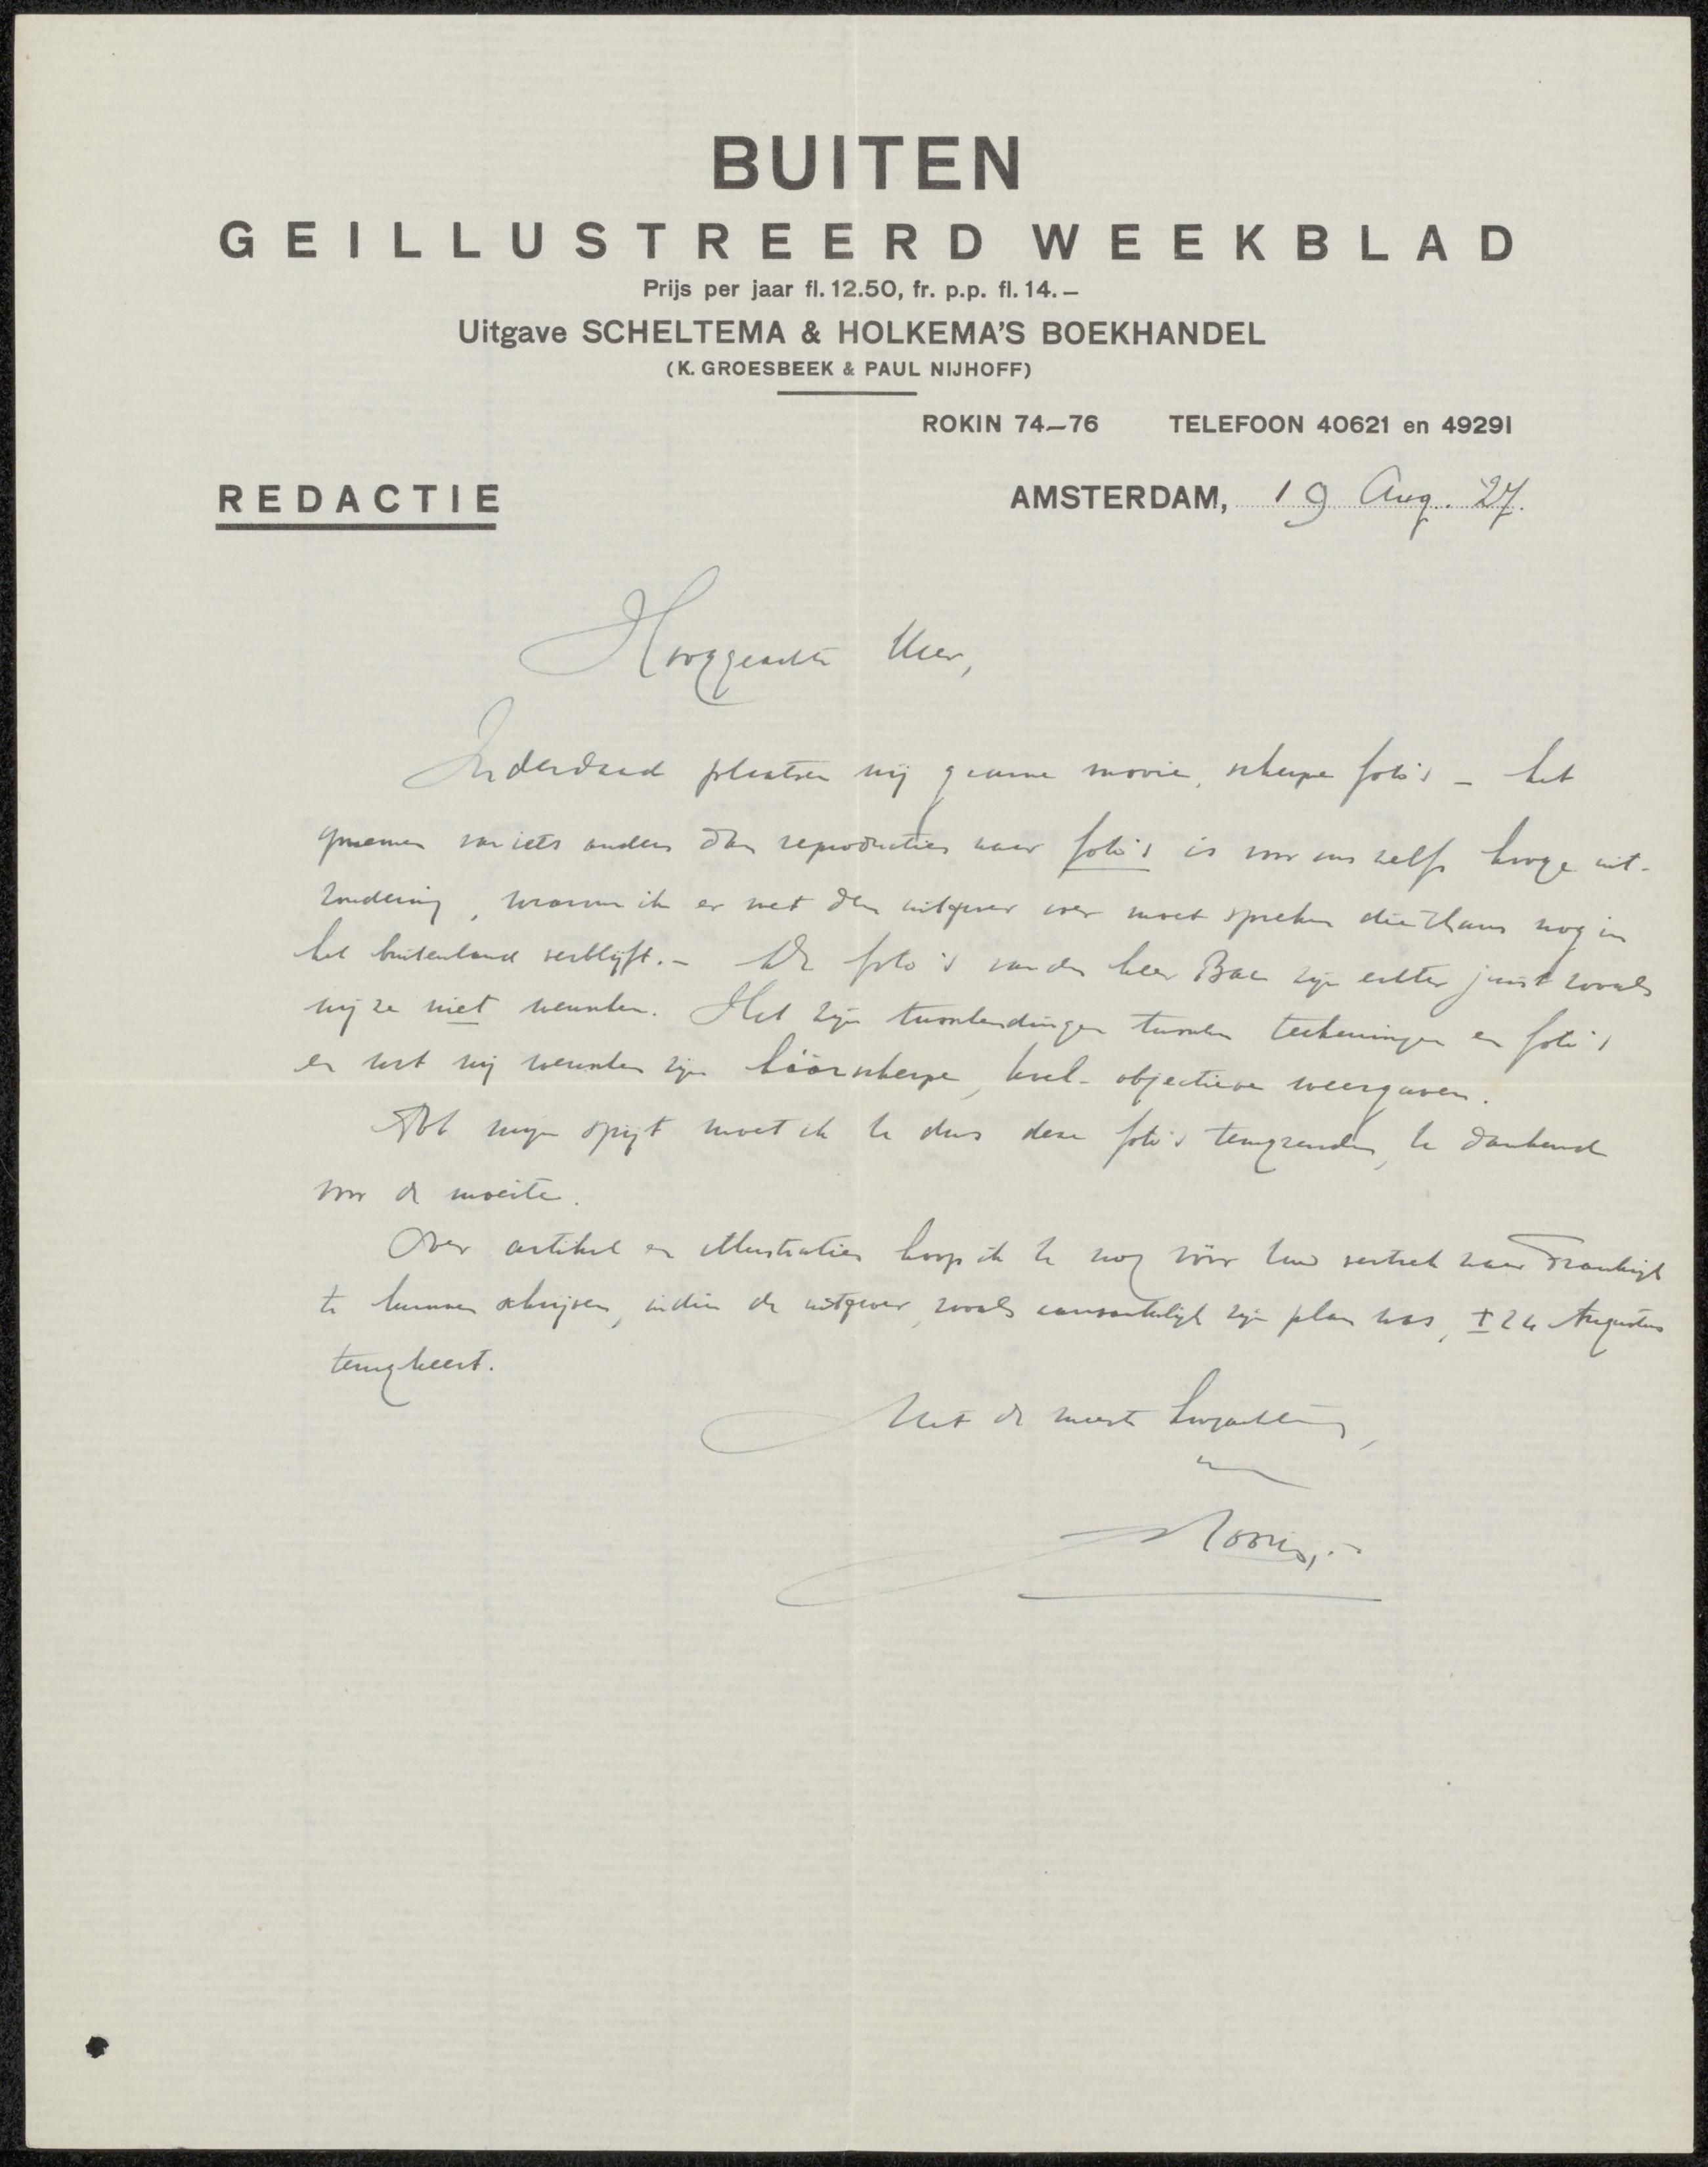 BUITEN
GEILLUSTREERD WEEKBLAD
Prijs per jaar fl. 12.50, fr. p.p. fl. 14.—
Uitgave SCHELTEMA & HOLKEMA'S BOEKHANDEL
(K. GROESBEEK & PAUL NIJHOFF)
ROKIN 74—76 TELEFOON 40621 en 49291
REDACTIE
AMSTERDAM, 19 Aug. '27.
Hooggeachte Heer,
Inderdaad plaatsen wij gaarne mooie, scherpe foto's — het
opnemen van iets anders dan reproducties naar foto's is voor ons zelfs hooge uit-
zondering, waarom ik er met den uitgever over moet spreken die thans nog in
het buitenland verblijft. — De foto's van den heer Bae zijn echter juist zooals
wij ze niet wenschen. Het zijn tusschendingen tusschen teekeningen en foto's
en wat wij wenschen zijn háárscherpe, koel-objectieve weergaven.
Tot mijn spijt moet ik U dus deze foto's terugzenden, U dankend
voor de moeite.
Over artikel en illustraties hoop ik U nog vóór Uw vertrek naar Frankrijk
te kunnen schrijven, indien de uitgever, zooals aanvankelijk zijn plan was, ± 24 Augustus
terugkeert.
Met de meeste hoogachting,